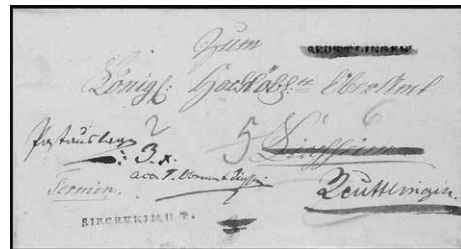 Zum
REUTLINGEN
Königl: Hochlöbl: Oberamt
2
6
Postauslage
3. x.
5 Kirchheim
Termin.
Reuttlingen.
KIRCHHEIM U. T.